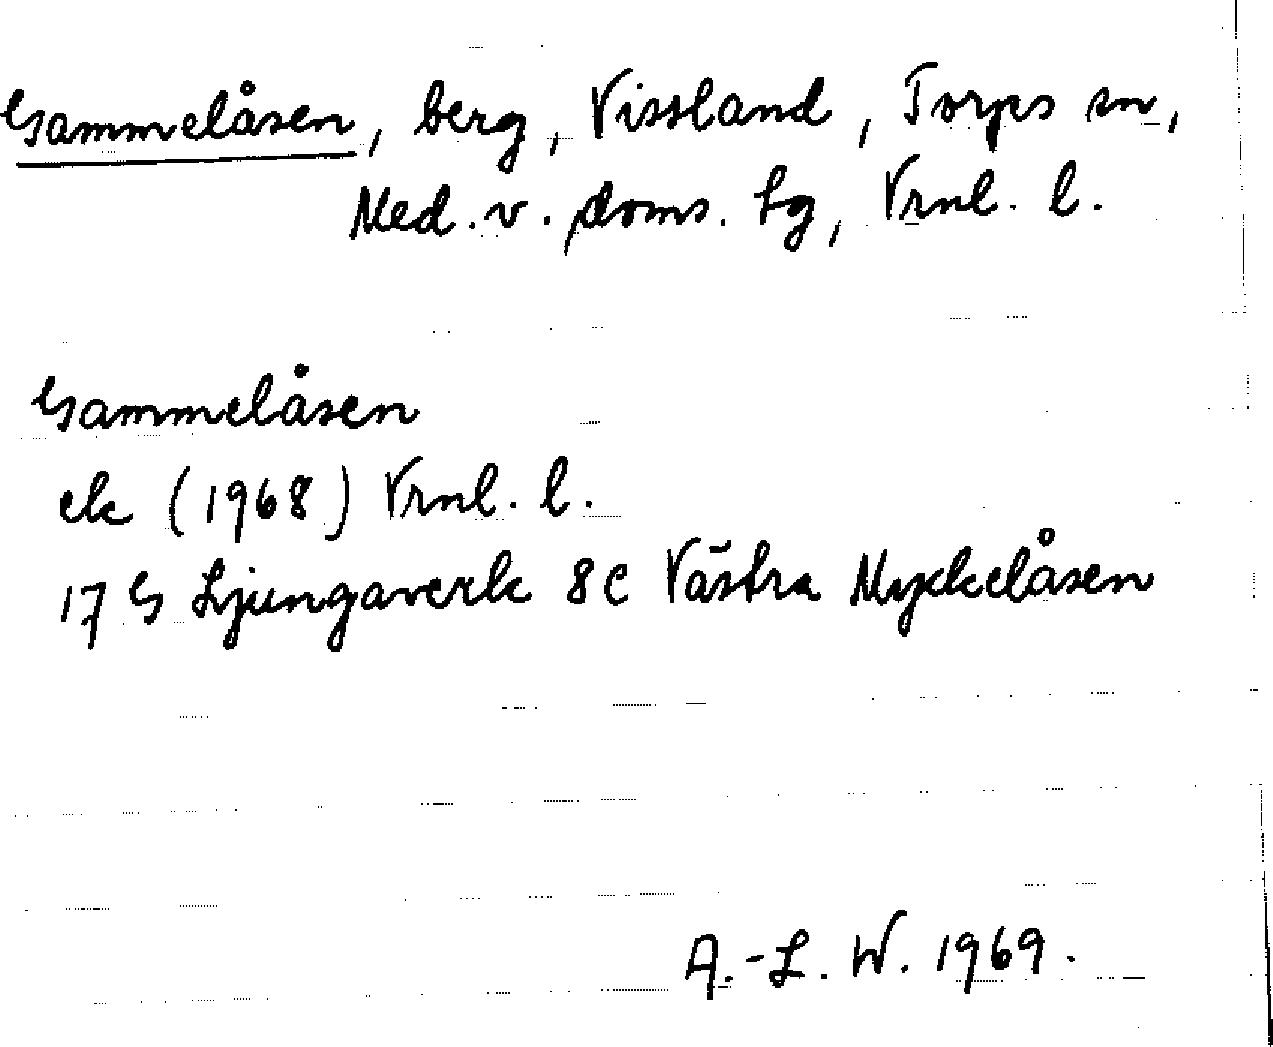 Gammelåsen, berg, Vissland, Torps sn,
Med. v. doms. hg, Vrnl. l.
Gammelåsen
ek (1968) Vrnl. l.
17 G Ljungaverk 8c Västra Myckelåsen
A.-L. W. 1969.